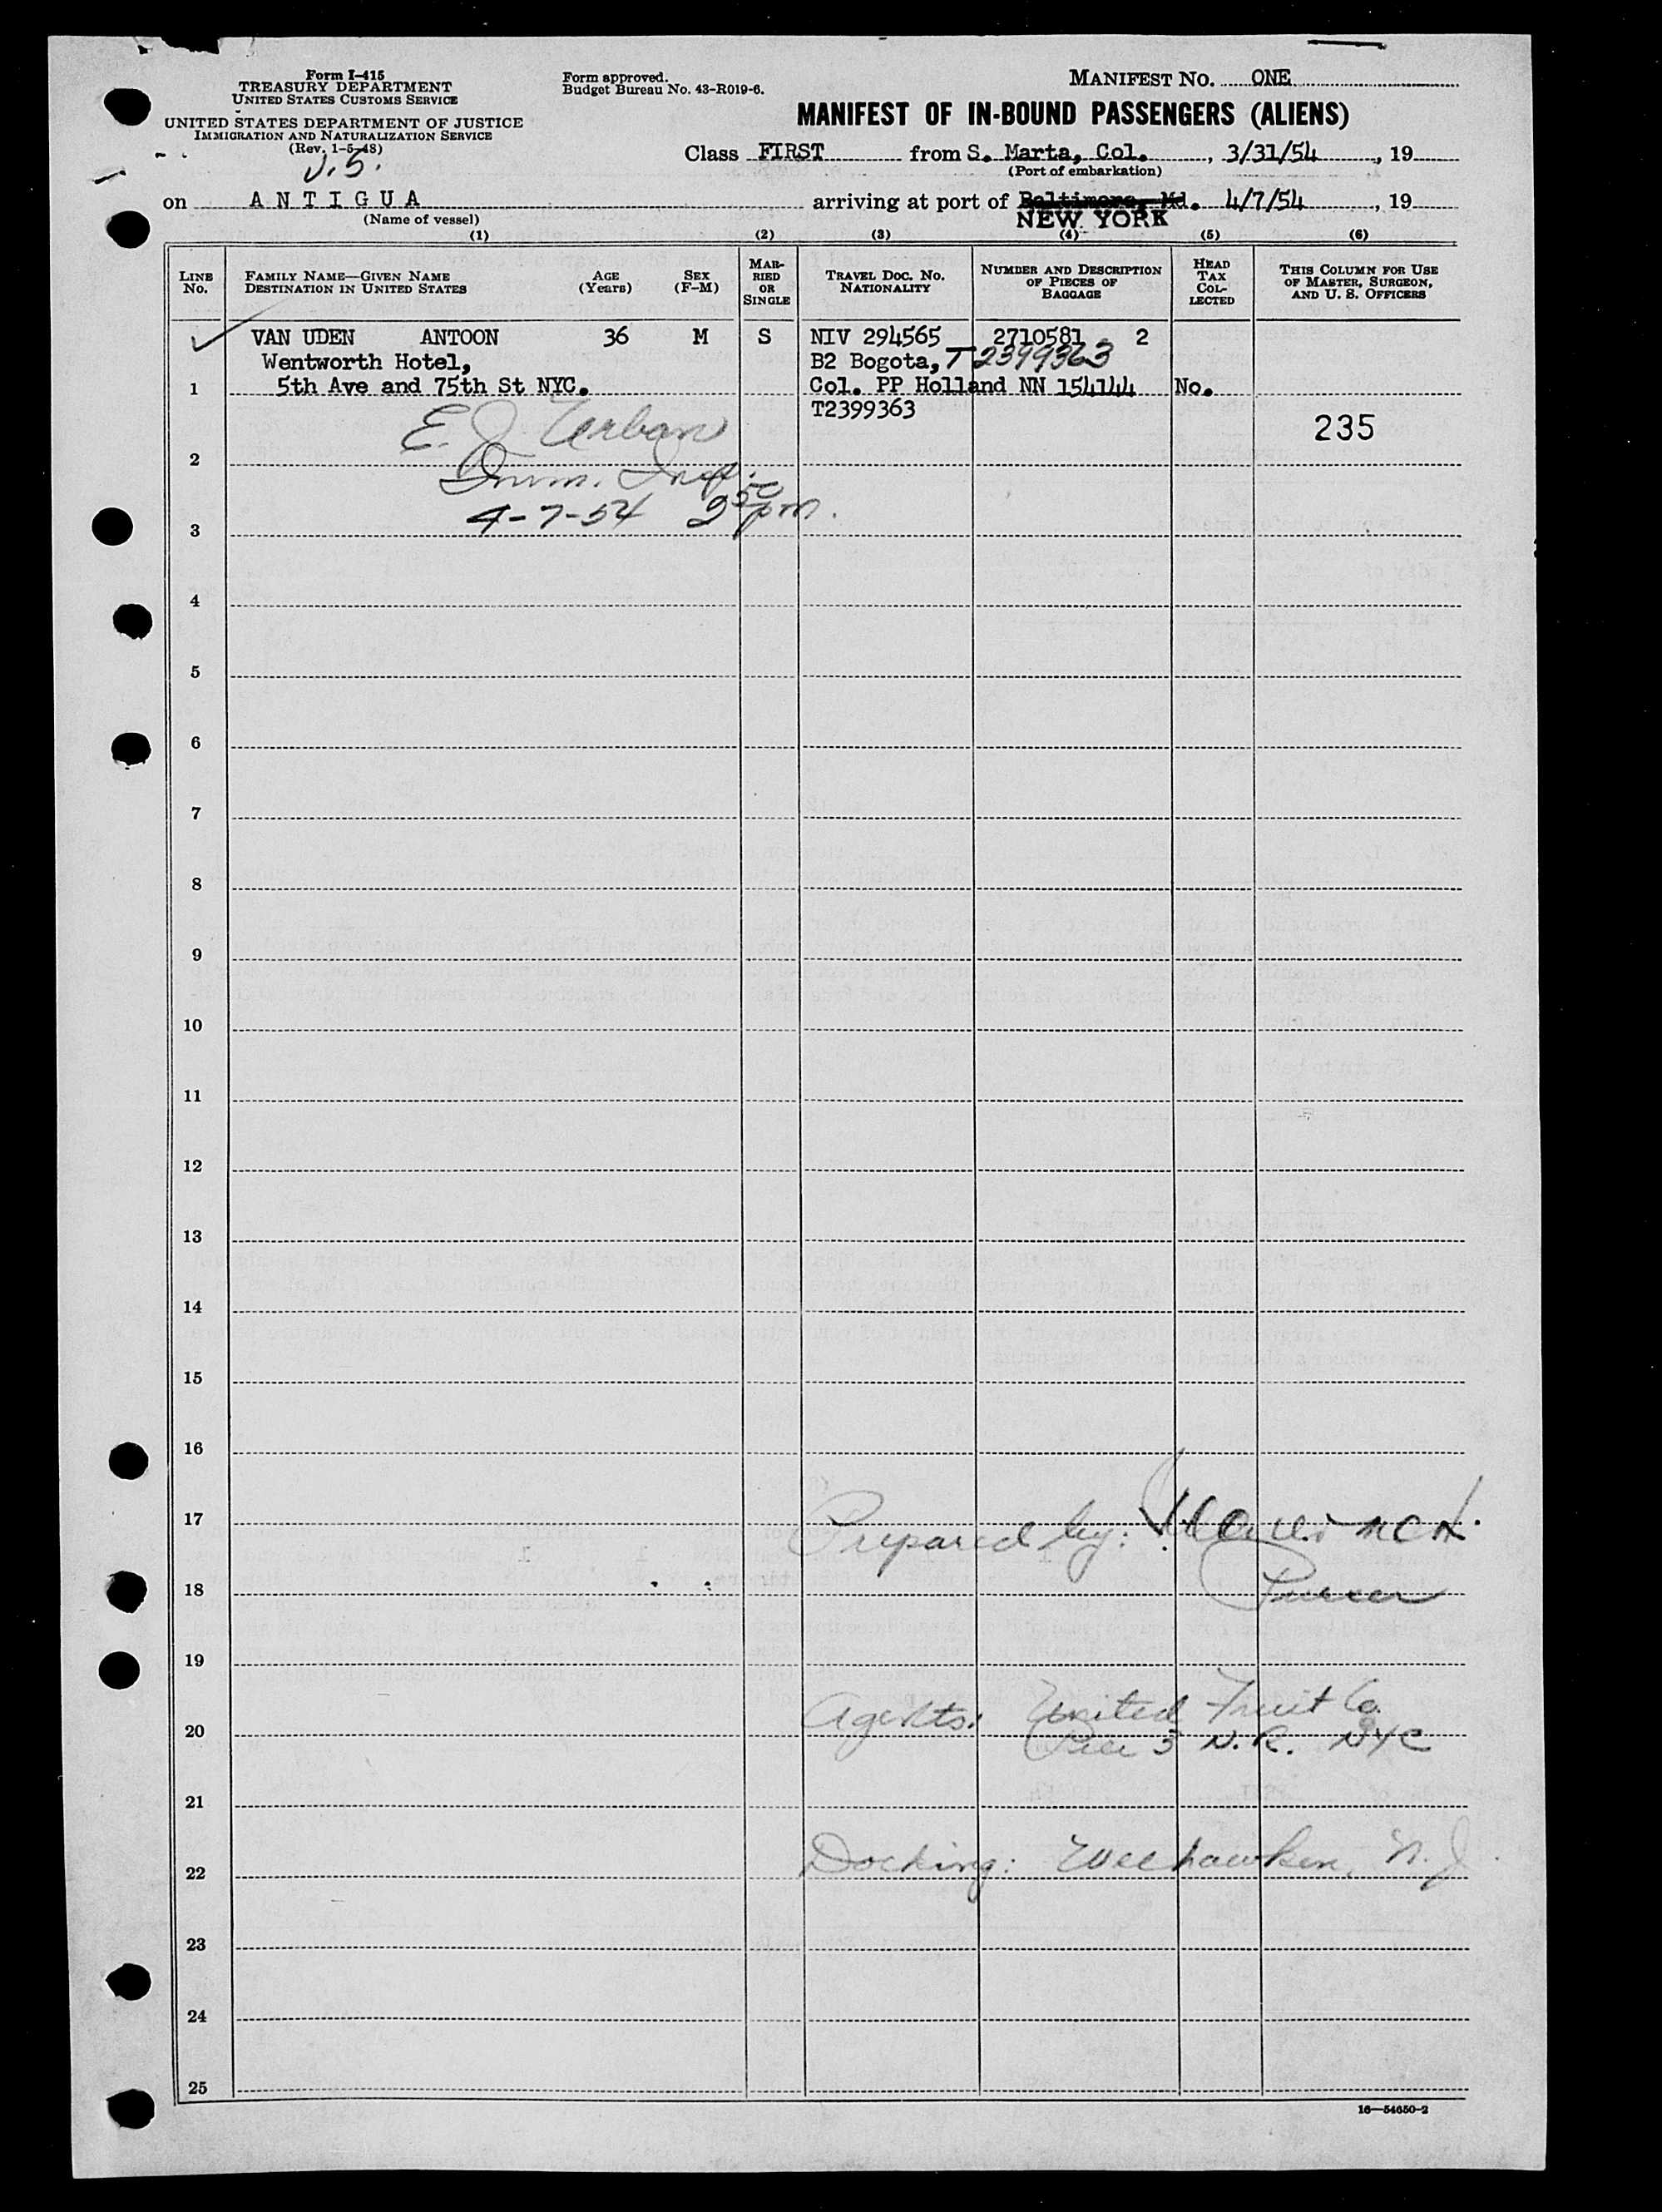 Form I-415
TREASURY DEPARTMENT
UNITED STATES CUSTOMS SERVICE
UNITED STATES DEPARTMENT OF JUSTICE
IMMIGRATION AND NATURALIZATION SERVICE
(Rev. 1-5-48)
Form approved.
Budget Bureau No. 43-R019-6.
MANIFEST NO. ONE
MANIFEST OF IN-BOUND PASSENGERS (ALIENS)
Class FIRST from S. Marta, Col. , 3/31/54 , 19
(Port of embarkation)
on ANTIGUA arriving at port of Baltimore, Md. 4/7/54 , 19
(Name of vessel) NEW YORK
(1) (2) (3) (4) (5) (6)
LINE NO.
FAMILY NAME—GIVEN NAME
DESTINATION IN UNITED STATES
AGE
(Years)
SEX
(F-M)
MARRIED OR SINGLE
TRAVEL DOC. NO.
NATIONALITY
NUMBER AND DESCRIPTION
OF PIECES OF
BAGGAGE
HEAD
TAX
COL-
LECTED
THIS COLUMN FOR USE
OF MASTER, SURGEON,
AND U. S. OFFICERS
VAN UDEN ANTOON 36 M S NIV 294565 2710581 2
Wentworth Hotel, B2 Bogota, T2399363
1 5th Ave and 75th St NYC. Col. PP Holland NN 154144 No.
T2399363
235
E. J. Urban
2
Imm. Insp.
4-7-54 2 50 pm.
3
4
5
6
7
8
9
10
11
12
13
14
15
16
17
Prepared by:
Purser
18
19
Agents: United Fruit Co.
20
Pier 3 N.R. NYC
21
Docking: Weehawken, N.J.
22
23
24
25
16—54650-2